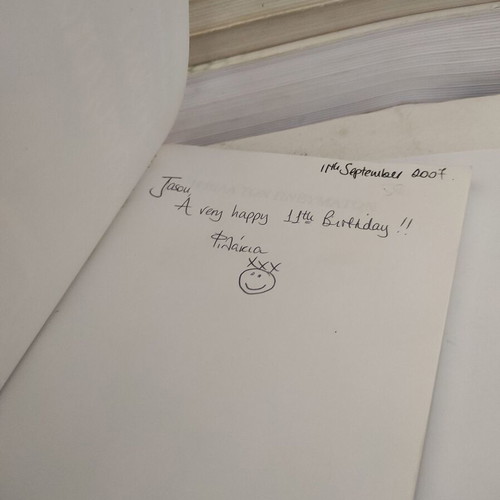 11th September 2007
Jason,
A very happy 11th Birthday !!
Φιλάκια
xxx